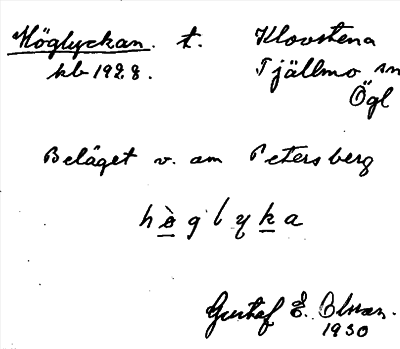 Höglyckan. t. Klovstena
kb 1928. Tjällmo sn
Ögl
Beläget v. om Petersberg
h ò g l y k a
Gustaf E.
1930